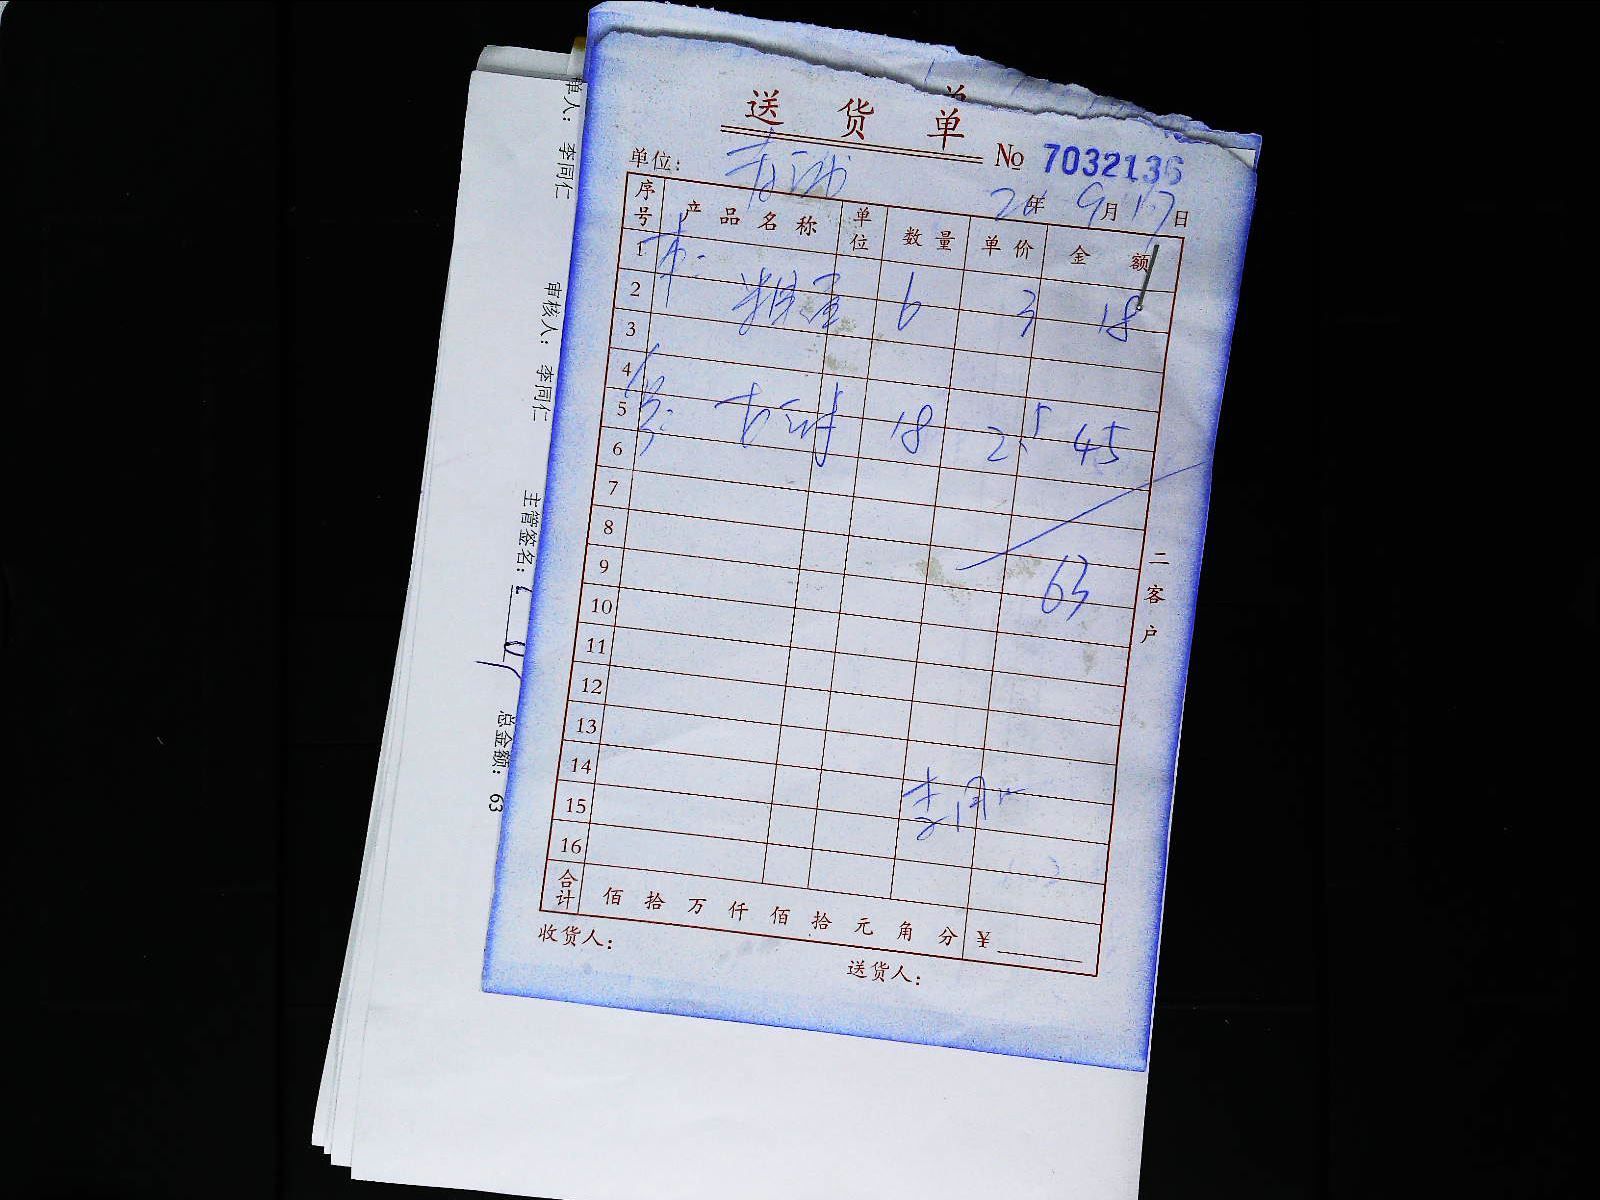 送 货 单
No 7032136
单位：
20年 9月17日
序号 产品名称 单位 数量 单价 金额
1
2 6 3 18
3
4
5 18 2.5 45
6
7
8
9 63
10
11
12
13
14
15
16
合计 佰 拾 万 仟 佰 拾 元 角 分 ¥
收货人：
送货人：
二客户
单人： 李同仁
审核人： 李同仁
主管签名：
总金额： 63